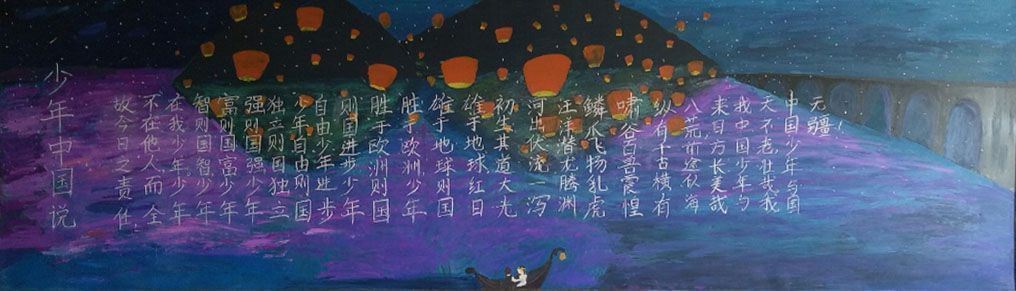 少年中国说
故今日之责任
不在他人而全
在我少年少年
智则国智少年
富则国富少年
强则国强少年
独立则国独立
少年自由则国
自由少年进步
则国进步少年
胜于欧洲则国
胜于欧洲少年
雄于地球则国
雄于地球红日
初生其道大光
河出伏流一泻
汪洋潜龙腾渊
鳞爪飞扬乳虎
啸谷百兽震惶
纵有千古横有
八荒前途似海
来日方长美哉
我中国少年与
天不老壮哉我
中国少年与国
无疆！